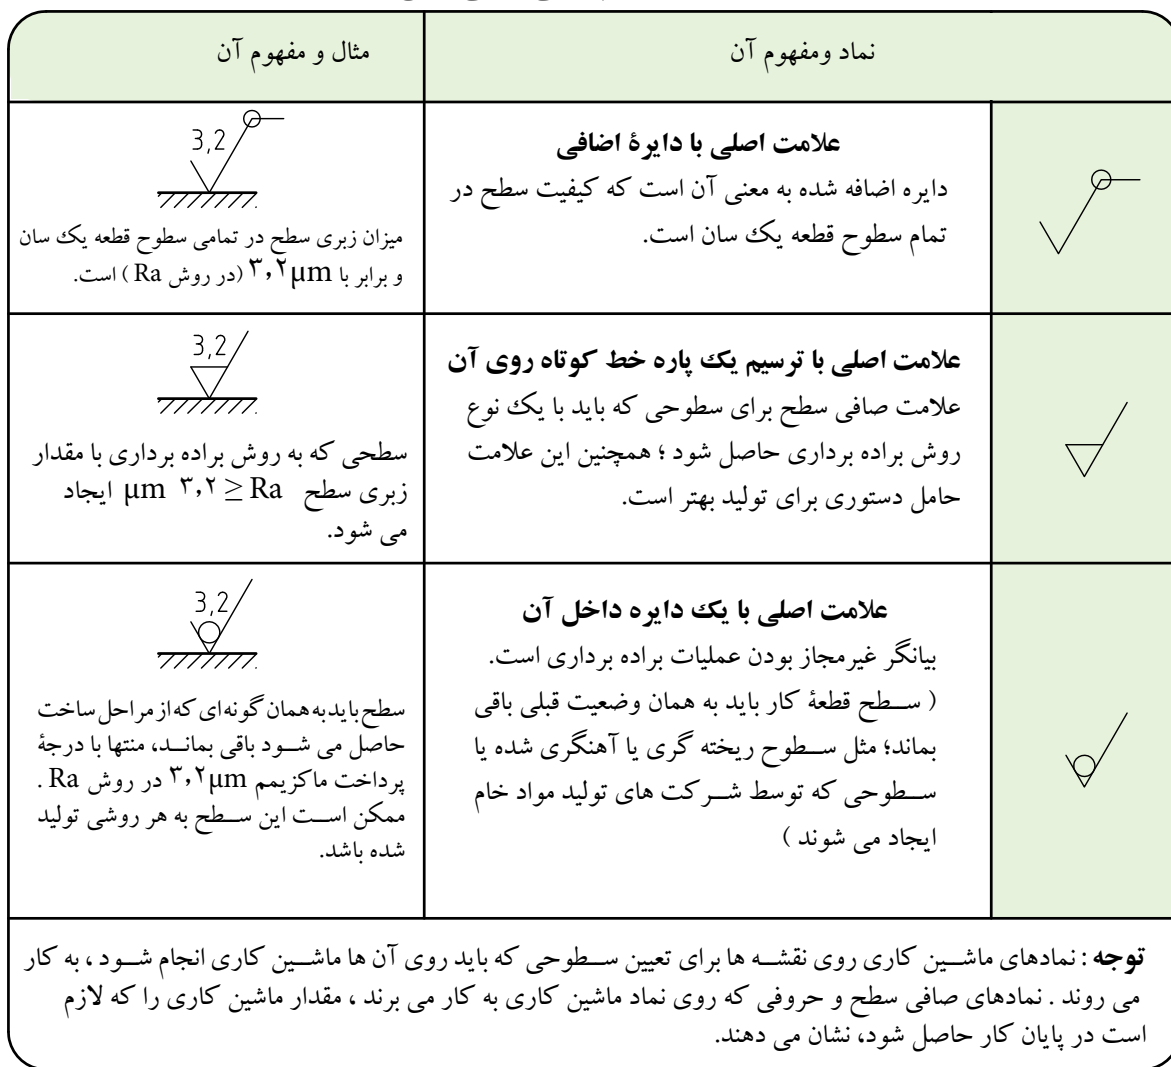 نماد ومفهوم آن
مثال و مفهوم آن
علامت اصلی با دایرهٔ اضافی
دایره اضافه شده به معنی آن است که کیفیت سطح در
تمام سطوح قطعه یک سان است.
3,2
میزان زبری سطح در تمامی سطوح قطعه یک سان
و برابر با ۳٫۲µm (در روش Ra) است.
علامت اصلی با ترسیم یک پاره خط کوتاه روی آن
علامت صافی سطح برای سطوحی که باید با یک نوع
روش براده برداری حاصل شود ؛ همچنین این علامت
حامل دستوری برای تولید بهتر است.
3,2
سطحی که به روش براده برداری با مقدار
زبری سطح Ra ≤ ۳٫۲ µm ایجاد
می شود.
علامت اصلی با یک دایره داخل آن
بیانگر غیرمجاز بودن عملیات براده برداری است.
( سطح قطعهٔ کار باید به همان وضعیت قبلی باقی
بماند؛ مثل سطوح ریخته گری یا آهنگری شده یا
سطوحی که توسط شرکت های تولید مواد خام
ایجاد می شوند )
3,2
سطح باید به همان گونه ای که از مراحل ساخت
حاصل می شود باقی بماند، منتها با درجهٔ
پرداخت ماکزیمم ۳٫۲µm در روش Ra .
ممکن است این سطح به هر روشی تولید
شده باشد.
توجه : نمادهای ماشین کاری روی نقشه ها برای تعیین سطوحی که باید روی آن ها ماشین کاری انجام شود ، به کار
می روند . نمادهای صافی سطح و حروفی که روی نماد ماشین کاری به کار می برند ، مقدار ماشین کاری را که لازم
است در پایان کار حاصل شود، نشان می دهند.